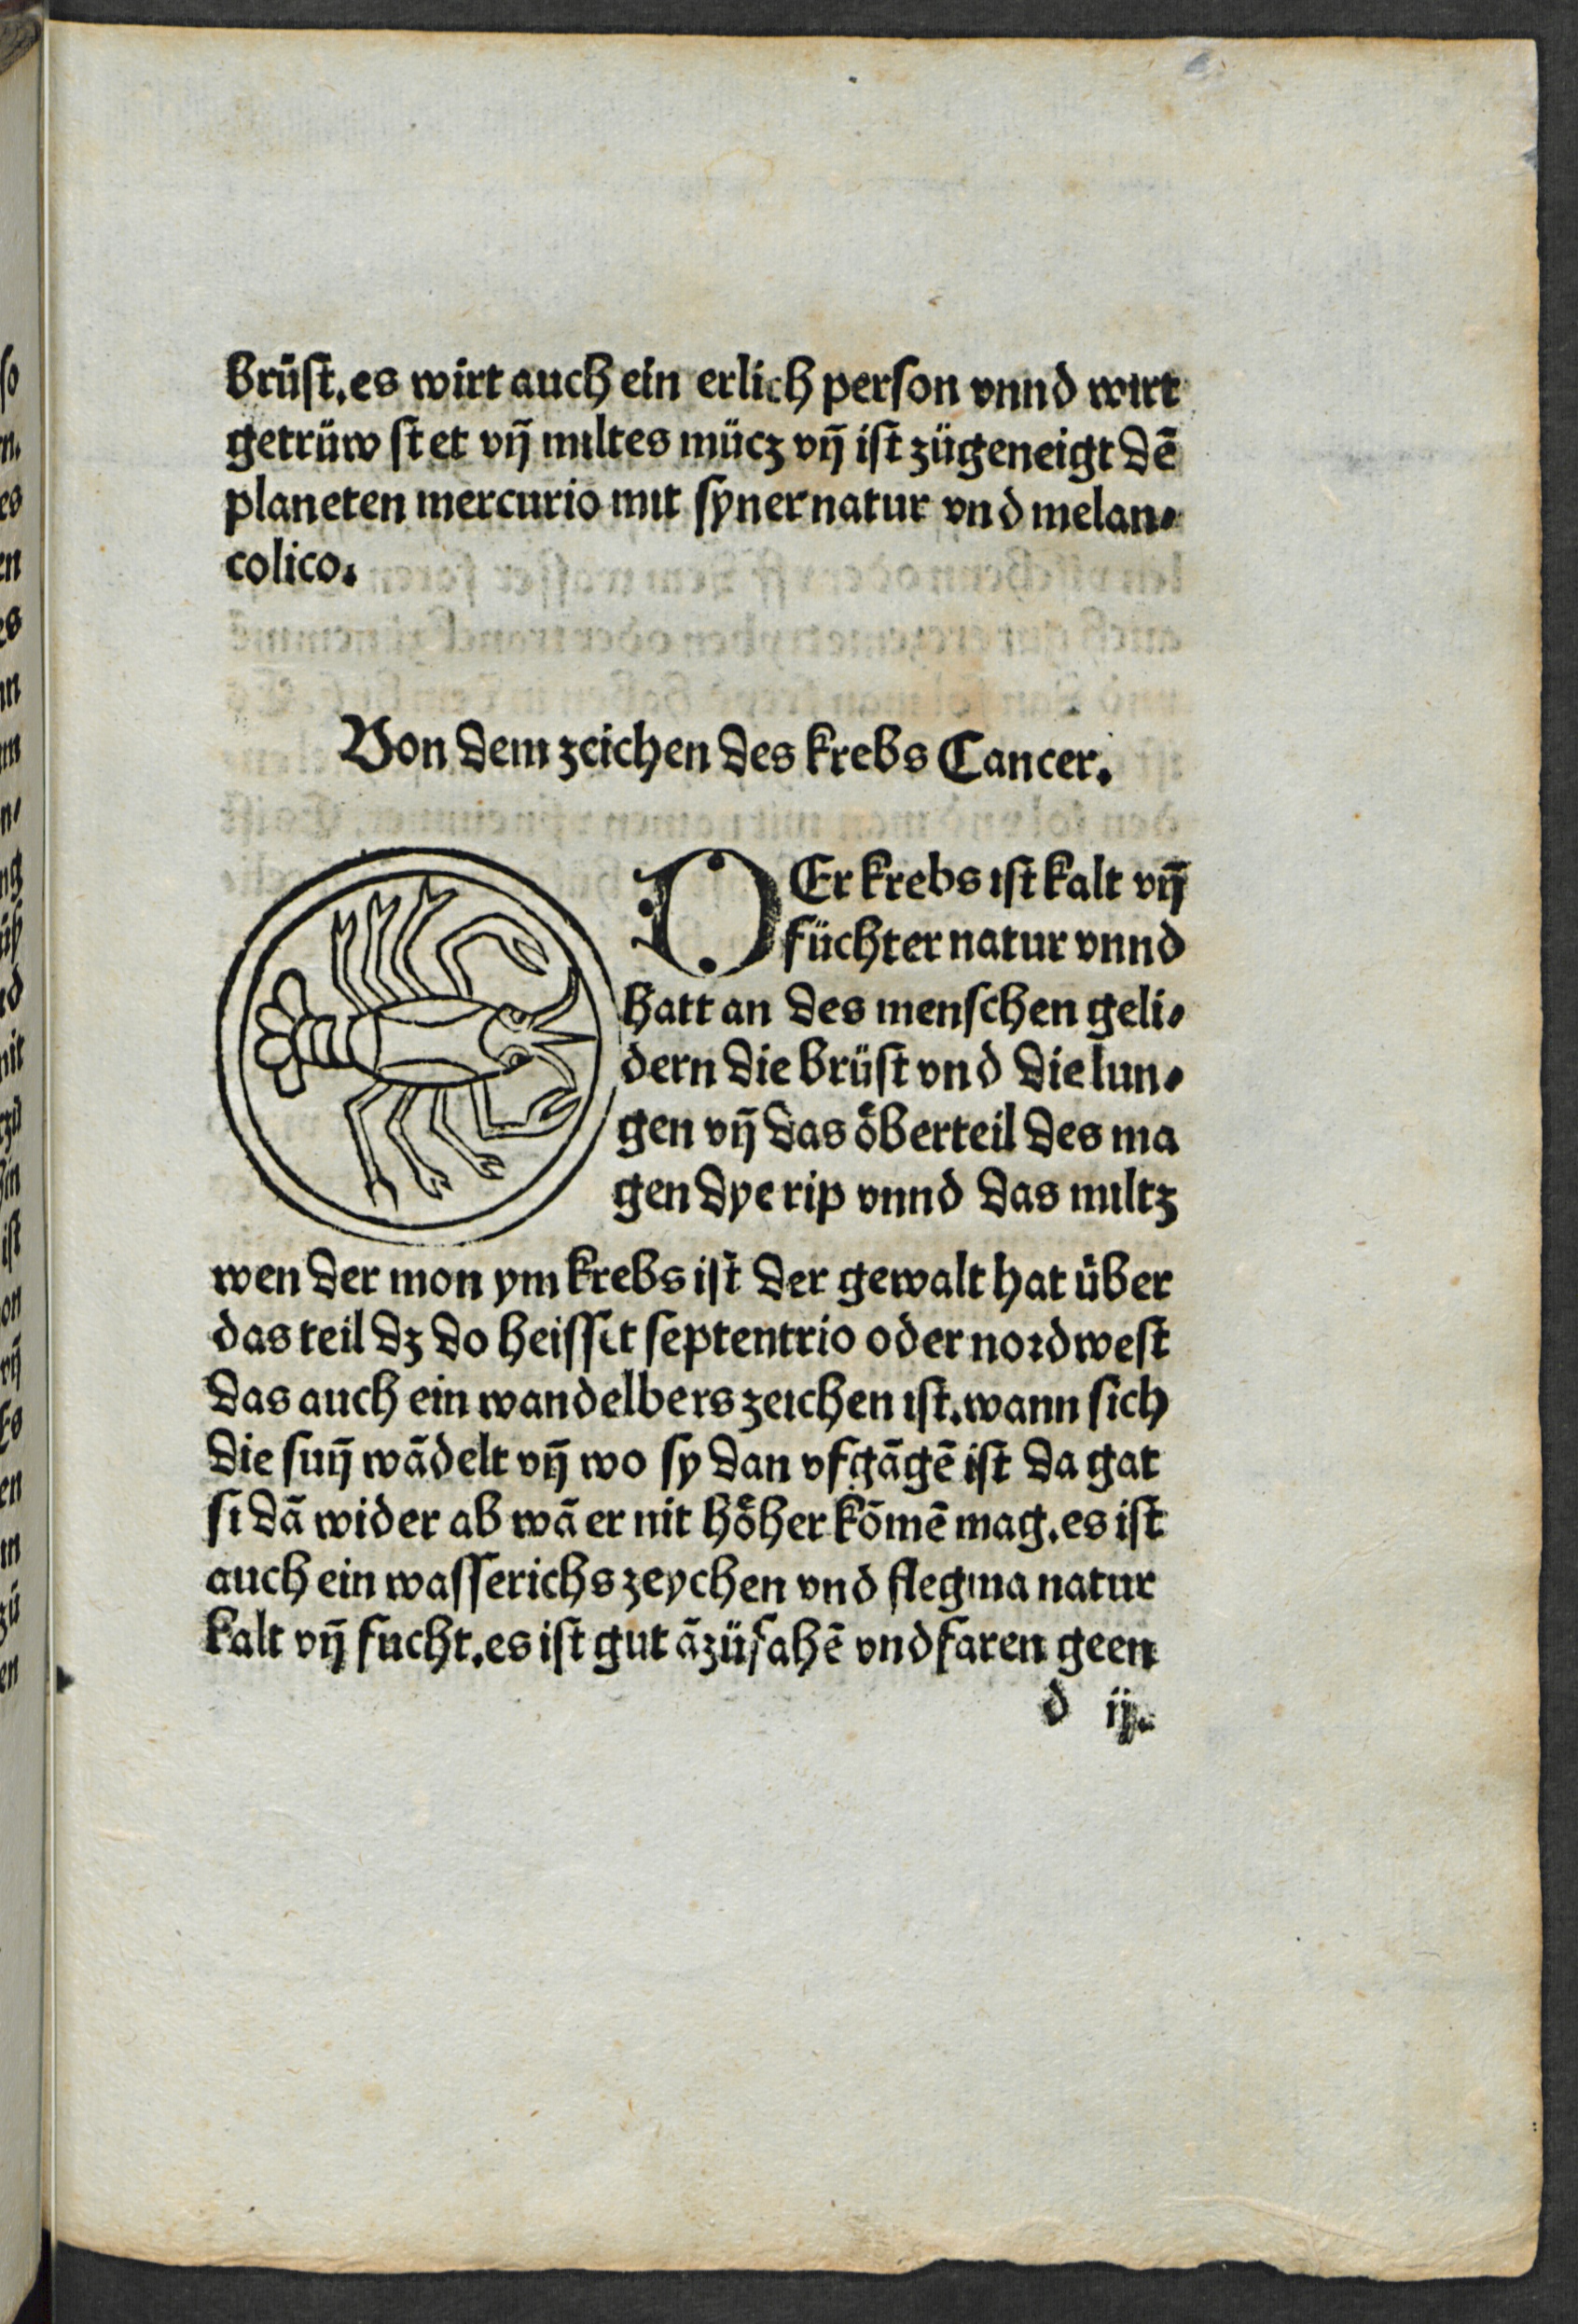 brüſt.es wirt auch ein erlich perſon vnnd wirt
getrüw ſtet vñ miltes mücz vñ iſt zügeneigt dē
planeten mercurio mit ſyner natur vnd melan⸗
colico.
Von dem zeichen des krebs Cancer.
DEr krebs iſt kalt vñ
füchter natur vnnd
hatt an des menſchen geli⸗
dern die brüſt vnd die lun⸗
gen vñ das öberteil des ma
gen dye rip vnnd das miltz
wen der mon ym krebs iſt der gewalt hat über
das teil dz do heiſſet ſeptentrio oder nordweſt
das auch ein wandelbers zeichen iſt.wann ſich
die ſuñ wādelt vñ wo ſy dan vfgāgē iſt da gat
ſi dā wider ab wā er nit höher kōmē mag.es iſt
auch ein waſſerichs zeychen vnd flegma natur
kalt vñ fucht.es iſt gut āzüfahē vnd faren geen
d ij.